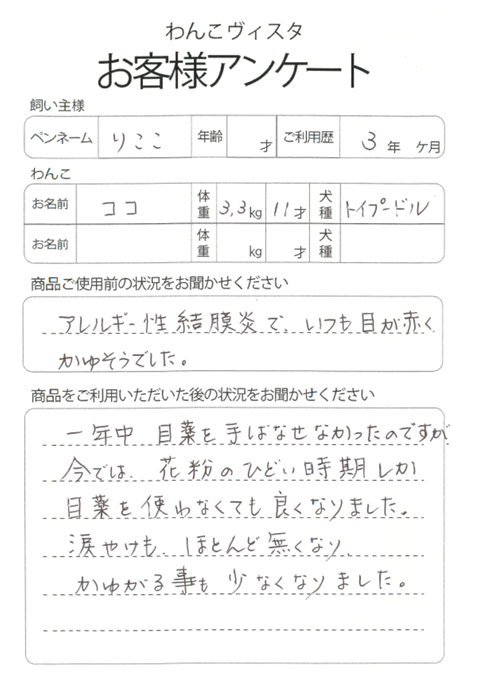 わんこヴィスタ
お客様アンケート
飼い主様
ペンネーム りここ 年齢 才 ご利用歴 3年 ヶ月
わんこ
お名前 ココ 体重 3.3kg 11才 犬種 トイプードル
お名前 体重 kg 才 犬種
商品ご使用前の状況をお聞かせください
アレルギー性結膜炎で、いつも目が赤く
かゆそうでした。
商品をご利用いただいた後の状況をお聞かせください
一年中 目薬を手ばなせなかったのですが
今では、花粉のひどい時期しか
目薬を使わなくても良くなりました。
涙やけも、ほとんど無くなり、
かゆがる事も少なくなりました。